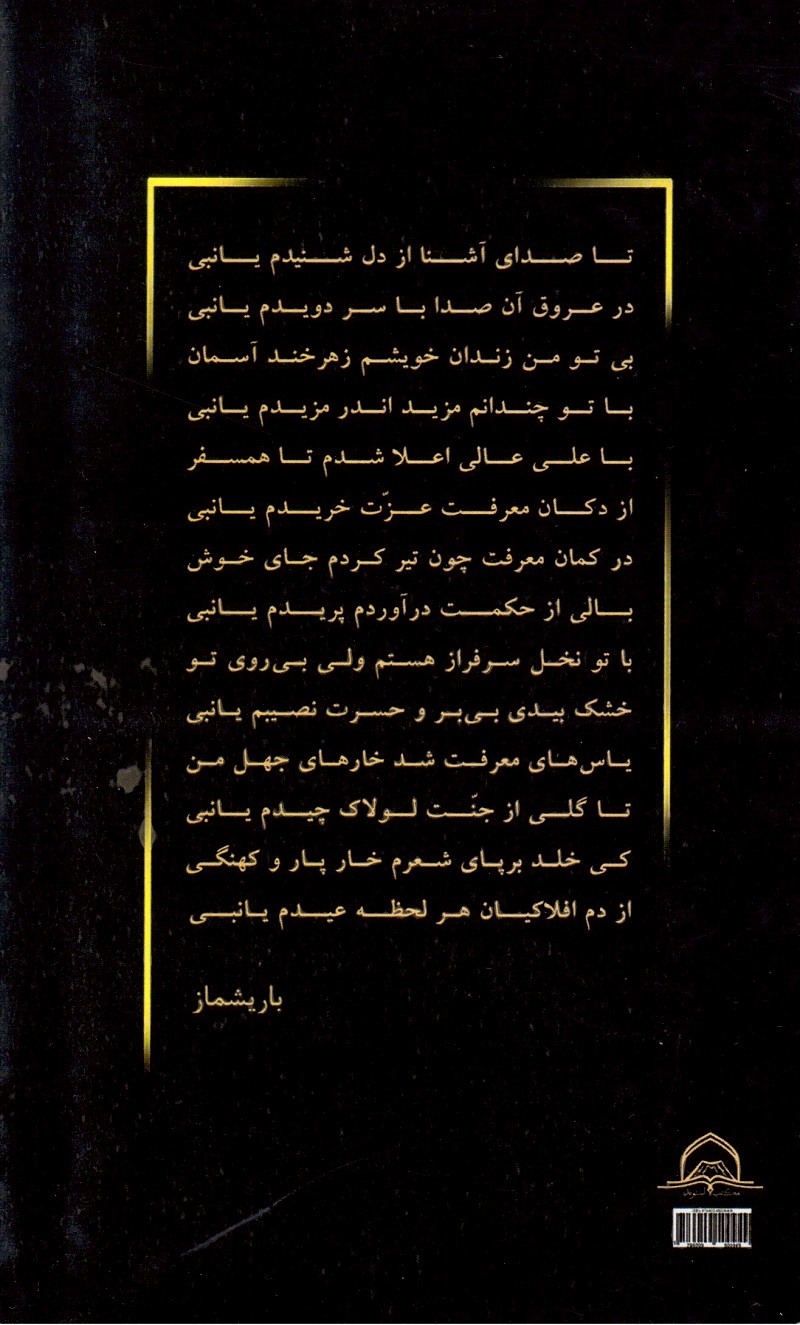 تا صدای آشنا از دل شنیدم یانبی
در عروق آن صدا با سر دویدم یانبی
بی تو من زندان خویشم زهرخند آسمان
با تو چندانم مزید اندر مزیدم یانبی
با علی عالی اعلا شدم تا همسفر
از دکان معرفت عزّت خریدم یانبی
در کمان معرفت چون تیر کردم جای خوش
بالی از حکمت درآوردم پریدم یانبی
با تو نخل سرفراز هستم ولی بی‌روی تو
خشک بیدی بی‌بر و حسرت نصیبم یانبی
یاس‌های معرفت شد خارهای جهل من
تا گلی از جنّت لولاک چیدم یانبی
کی خلد برپای شعرم خار پار و کهنگی
از دم افلاکیان هر لحظه عیدم یانبی
باریشماز